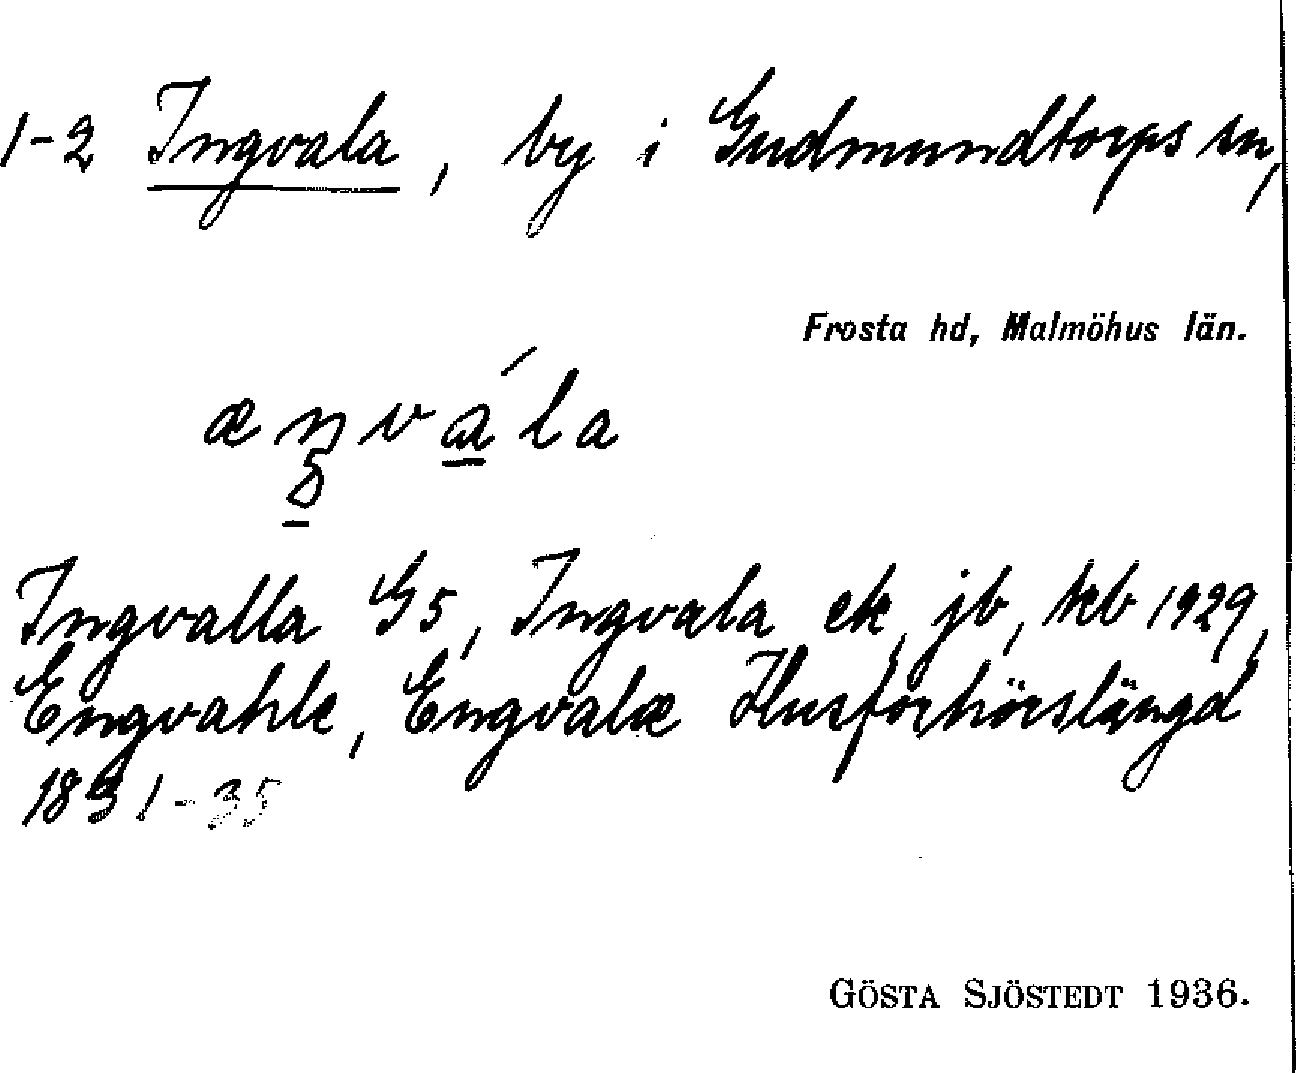 1-2 Ingvala, by i Gudmundtorps sn,
Frosta hd, Malmöhus län.
æŋvála
Ingvalla G5, Ingvala ek, jb, tkb 1929,
Engvahle, Engvalæ Husförhörslängd
1831-35
GÖSTA SJÖSTEDT 1936.